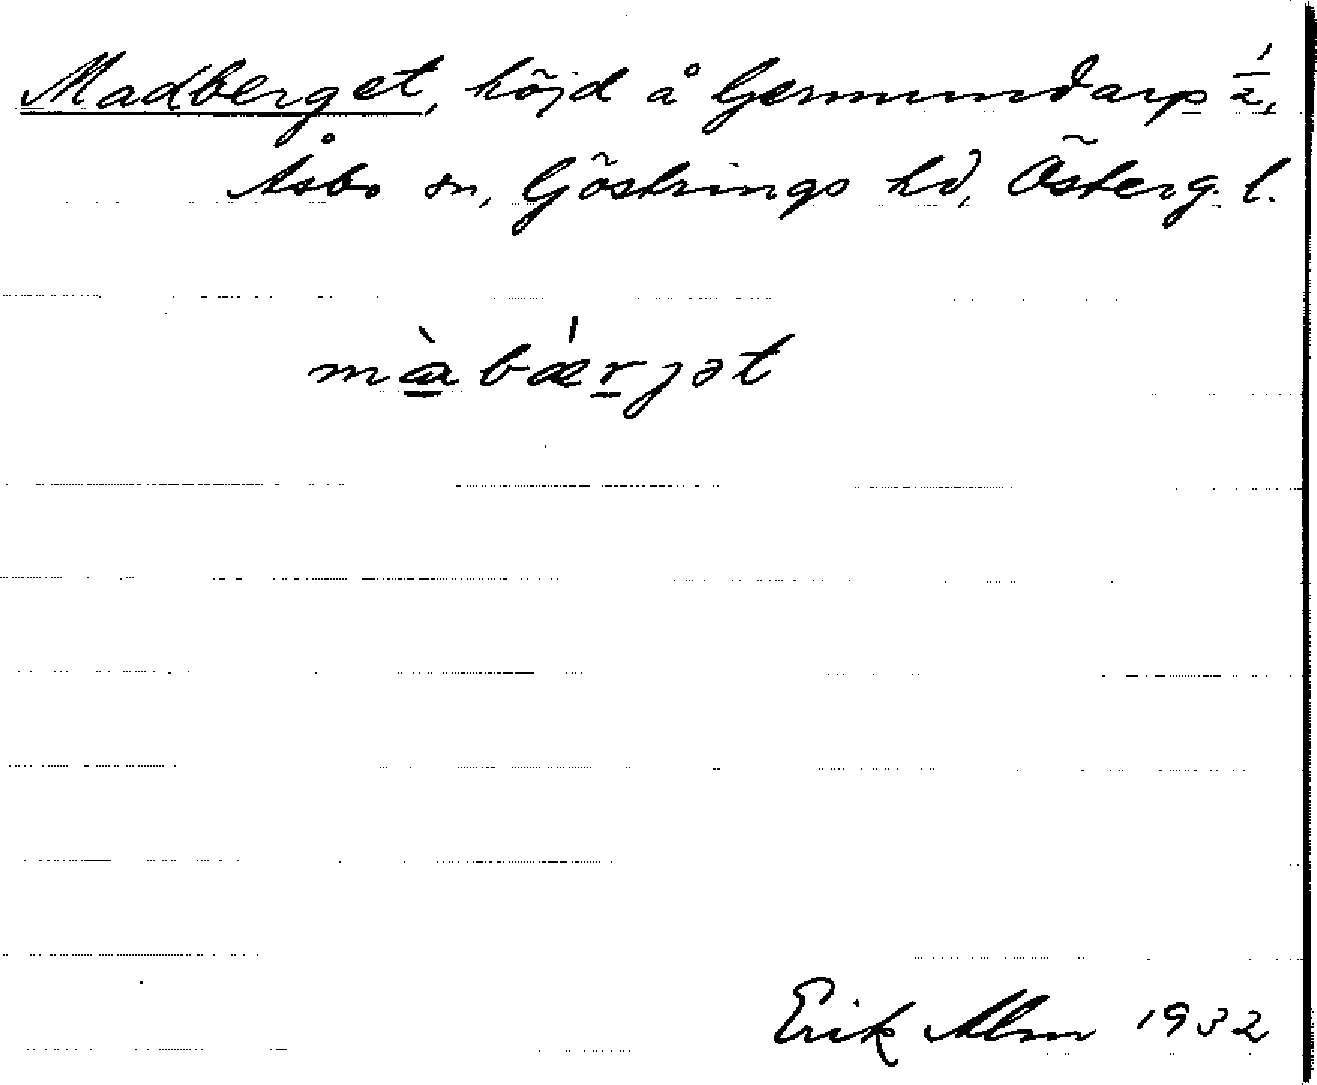 Madberget, höjd å Germundarp 1/2,
Åsbo sn, Göstrings hd, Österg. l.
màbæ̍rjət
Erik Alm 1932